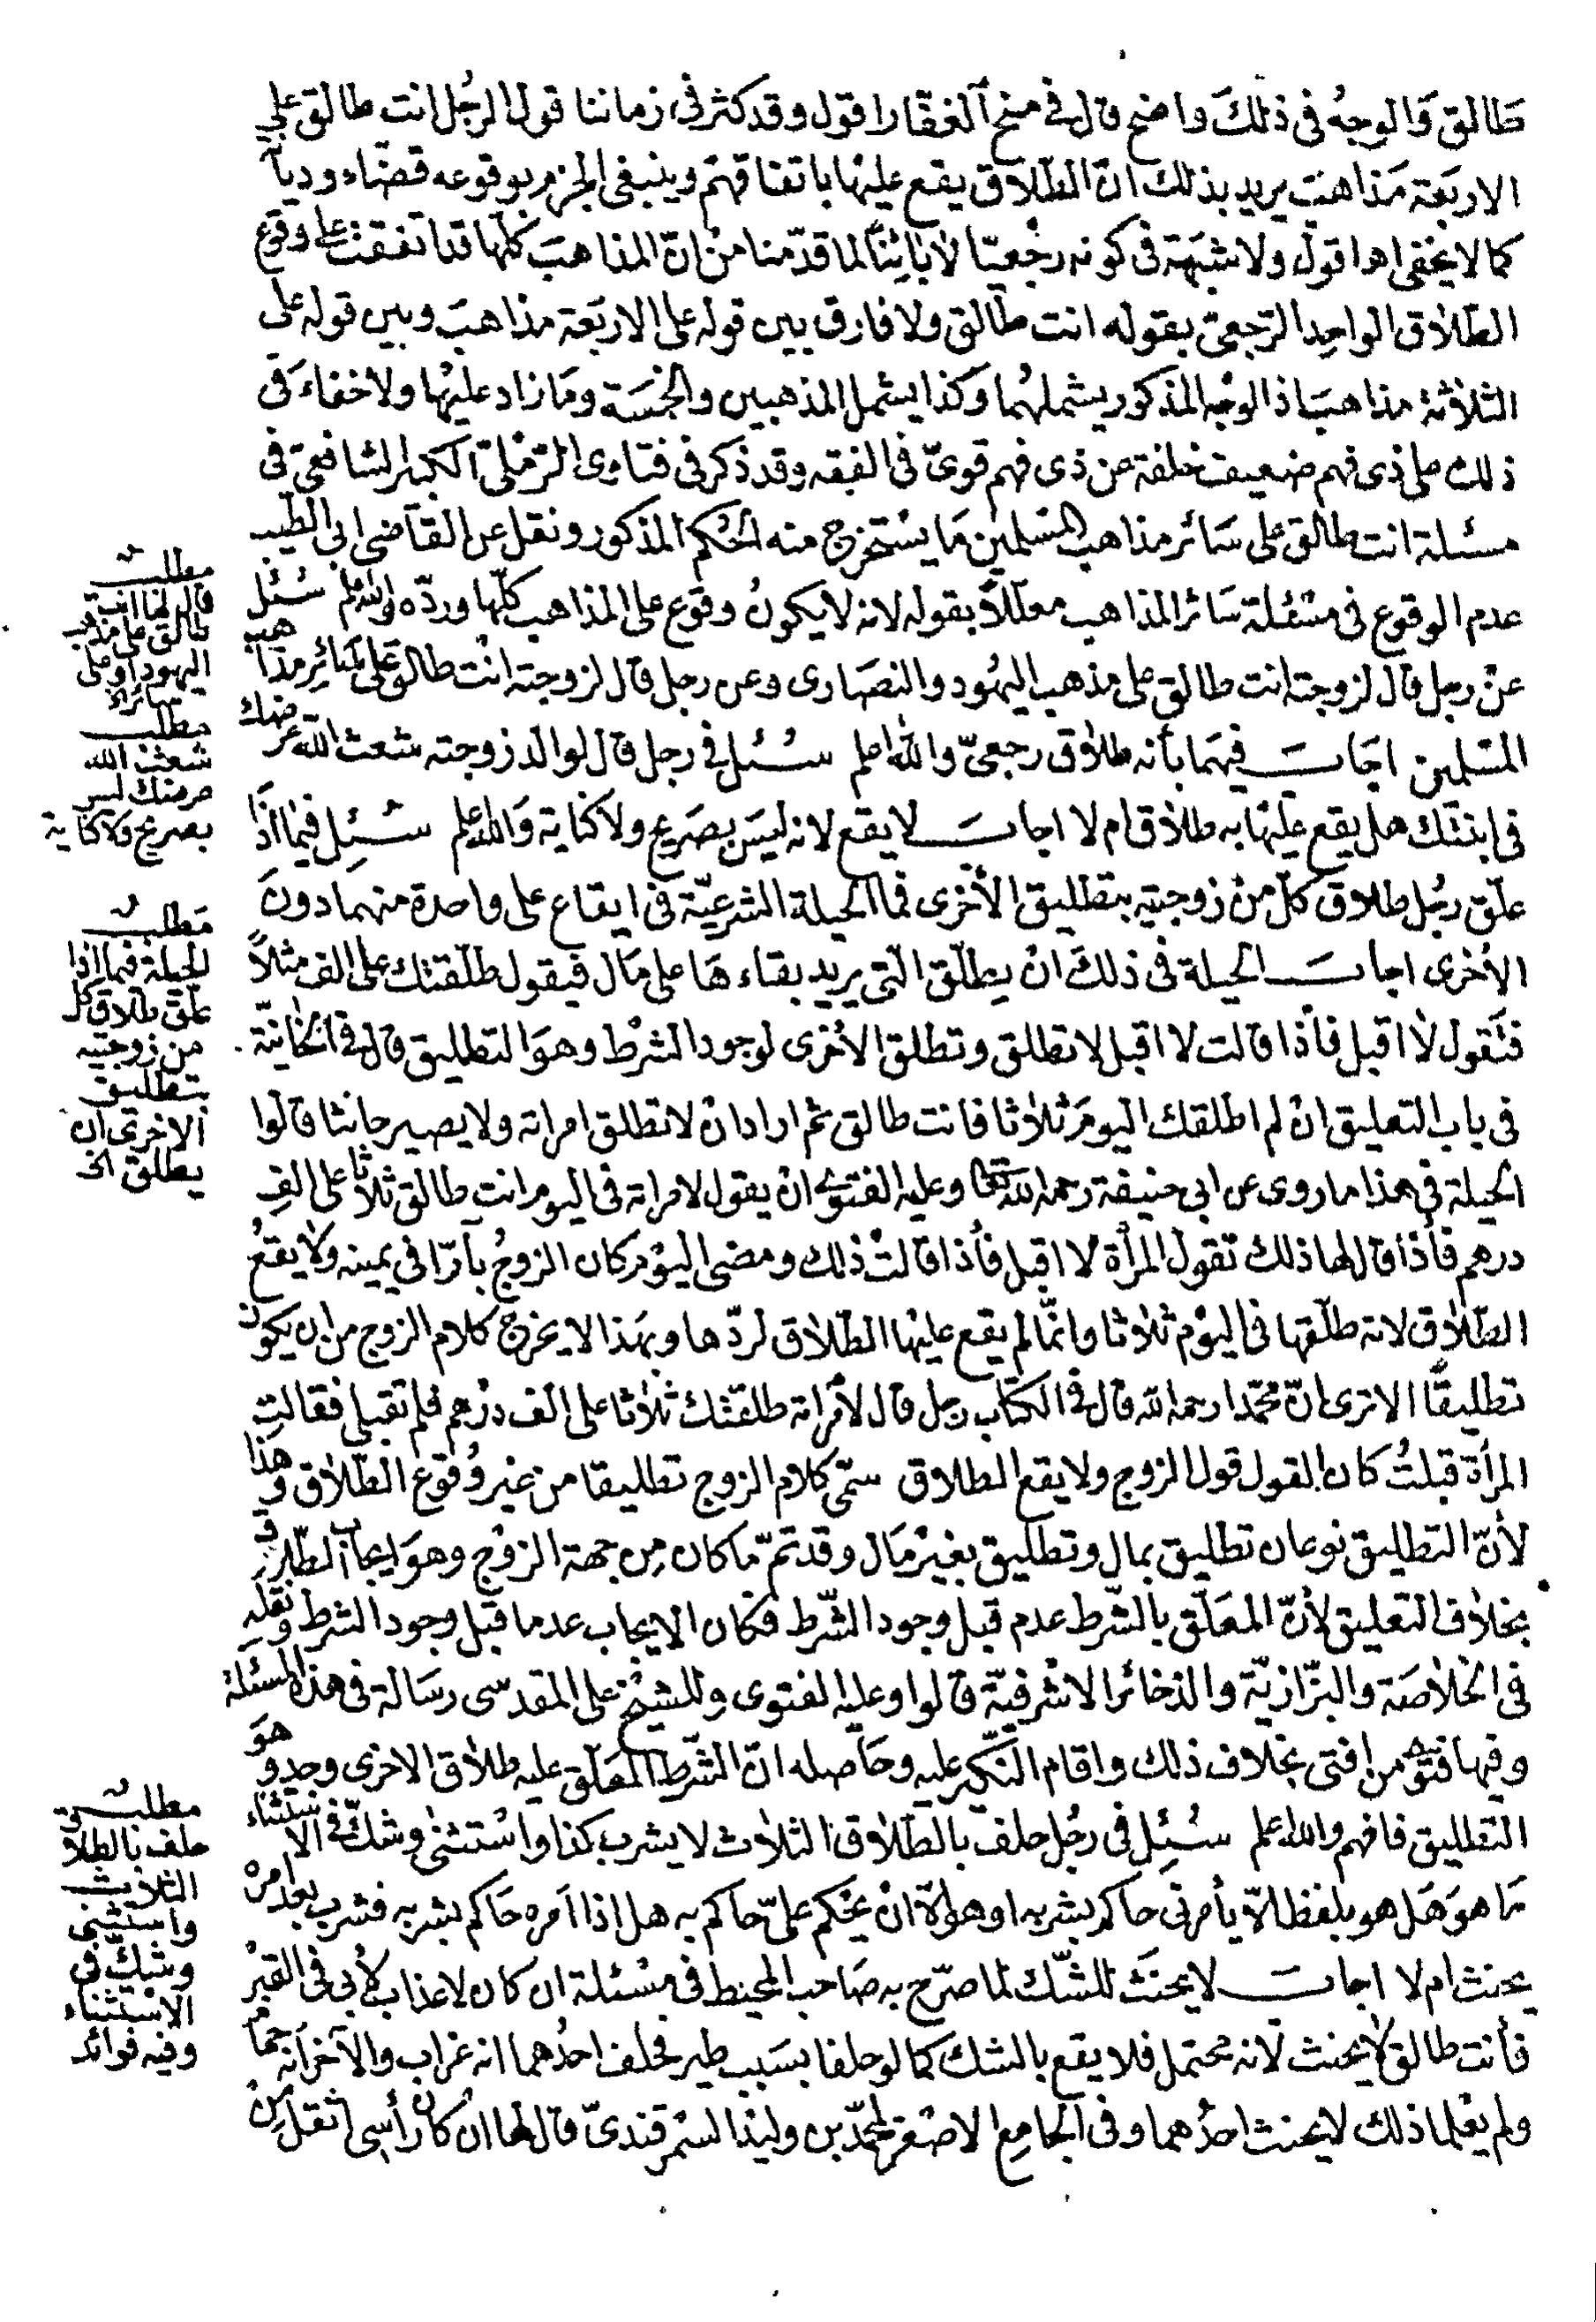 طالق والوجه فى ذلك واضح قال في منح الغفار اقول وقد كثر فى زماننا قول الرجل انت طالق على
الاربعة مذاهب يريد بذلك ان الطلاق يقع عليها باتفاقهم وينبغى الجزم بوقوعه قضاء وديا
كما لا يخفى اه اقول ولا شبهة فى كونه رجعيا لا بائنا لما قدمنا من ان المذاهب كلها قد اتفقت على وقوع
الطلاق الواحد الرجعى بقوله انت طالق ولا فارق بين قوله على الاربعة مذاهب وبين قوله على
الثلاثة مذاهب اذ الوجه المذكور يشملهما وكذا يشمل المذهبين والخمسة وما زاد عليها ولا خفاء فى
ذلك على ذى فهم ضعيف خلفة عن ذى فهم قوى فى الفقه وقد ذكر فى فتاوى الرملى الكبير الشافعى فى
مسئلة انت طالق على سائر مذاهب المسلمين ما يستخرج منه الحكم المذكور ونقل عن القاضى ابى الطيب
عدم الوقوع فى مسئلة سائر المذاهب معللا بقوله لانه لا يكون وقوع على المذاهب كلها ورده والله اعلم سئل
عن رجل قال لزوجته انت طالق على مذهب اليهود والنصارى وعن رجل قال لزوجته انت طالق على سائر مذاهب
المسلمين اجاب فيهما بأنه طلاق رجعى والله اعلم سئل في رجل قال لوالد زوجته شعث الله عرضك
فى ابنتك هل يقع عليها به طلاق ام لا اجاب لا يقع لانه ليس بصريح ولا كناية والله اعلم سئل فيما اذا
علق رجل طلاق كل من زوجتيه بتطليق الأخرى فما الحيلة الشرعية فى ايقاع على واحدة منهما دون
الأخرى اجاب الحيلة فى ذلك ان يطلق التى يريد بقاءها على مال فيقول طلقتك على الف مثلا
فتقول لا اقبل فأذا قالت لا اقبل لا تطلق وتطلق الأخرى لوجود الشرط وهو التطليق قال فى الخانية
فى باب التعليق ان لم اطلقك اليوم ثلاثا فانت طالق ثم اراد ان لا تطلق امراته ولا يصير حانثا قالوا
الحيلة في هذا ما روى عن ابى حنيفة رحمه الله تعالى وعليه الفتوى ان يقول لامراته فى اليوم انت طالق ثلاثا على الف
درهم فأذا قال لها ذلك تقول المرأة لا اقبل فأذا قالت ذلك ومضى اليوم كان الزوج بآرا في يمينه ولا يقع
الطلاق لانه طلقها فى اليوم ثلاثا وانما لم يقع عليها الطلاق لردها وبهذا لا يخرج كلام الزوج من ان يكون
تطليقا الا ترى ان محمدا رحمه الله قال فى الكتاب رجل قال لأمراته طلقتك ثلاثا على الف درهم فلم تقبلى فقالت
المرأة قبلت كان القول قول الزوج ولا يقع الطلاق سمى كلام الزوج تطليقا من غير وقوع الطلاق وهذا
لأن التطليق نوعان تطليق بمال وتطليق بغير مال وقد تم ما كان من جهة الزوج وهو ايجاب الطلاق
بخلاف التعليق لأن المعلق بالشرط عدم قبل وجود الشرط فكان الايجاب عدما قبل وجود الشرط ونقله
فى الخلاصة والبزازية والذخائر الاشرفية قالوا وعليه الفتوى وللشيخ على المقدسى رسالة فى هذه المسئلة
وفيها فتوى من افتى بخلاف ذلك واقام النكير عليه وحاصله ان الشرط المعلق عليه طلاق الاخرى وجد وهو
التطليق فافهم والله اعلم سئل فى رجل حلف بالطلاق الثلاث لا يشرب كذا واستثنى وشك فى الاستثناء
ما هو هل هو بلفظ الا يأمرنى حاكم بشربه او هو الا ان يحكم على حاكم به هل اذا امره حاكم بشربه فشرب بعد امره
يحنث ام لا اجاب لا يحنث للشك لما صرح به صاحب المحيط فى مسئلة ان كان لا عذاب لأبى فى القبر
فأنت طالق لا يحنث لانه محتمل فلا يقع بالشك كما لو حلفا بسبب طير فحلف احدهما انه غراب والآخر انه حمام
ولم يعلما ذلك لا يحنث احدهما وفى الجامع الاصغر لمحمد بن وليد السمرقندى قال لها ان كان رأسى اثقل من
مطلب
قال لها انت
طالق على مذهب
اليهود او على
سائر الخ
مطلب
شعث الله
عرضك ليس
بصريح ولا كناية
مطلب
الحيلة فيما اذا
علق طلاق كل
من زوجتيه
بتطليق
الاخرى ان
يطلق الخ
مطلب
حلف بالطلاق
الثلاث
واستثنى
وشك فى
الاستثناء
وفيه فوائد